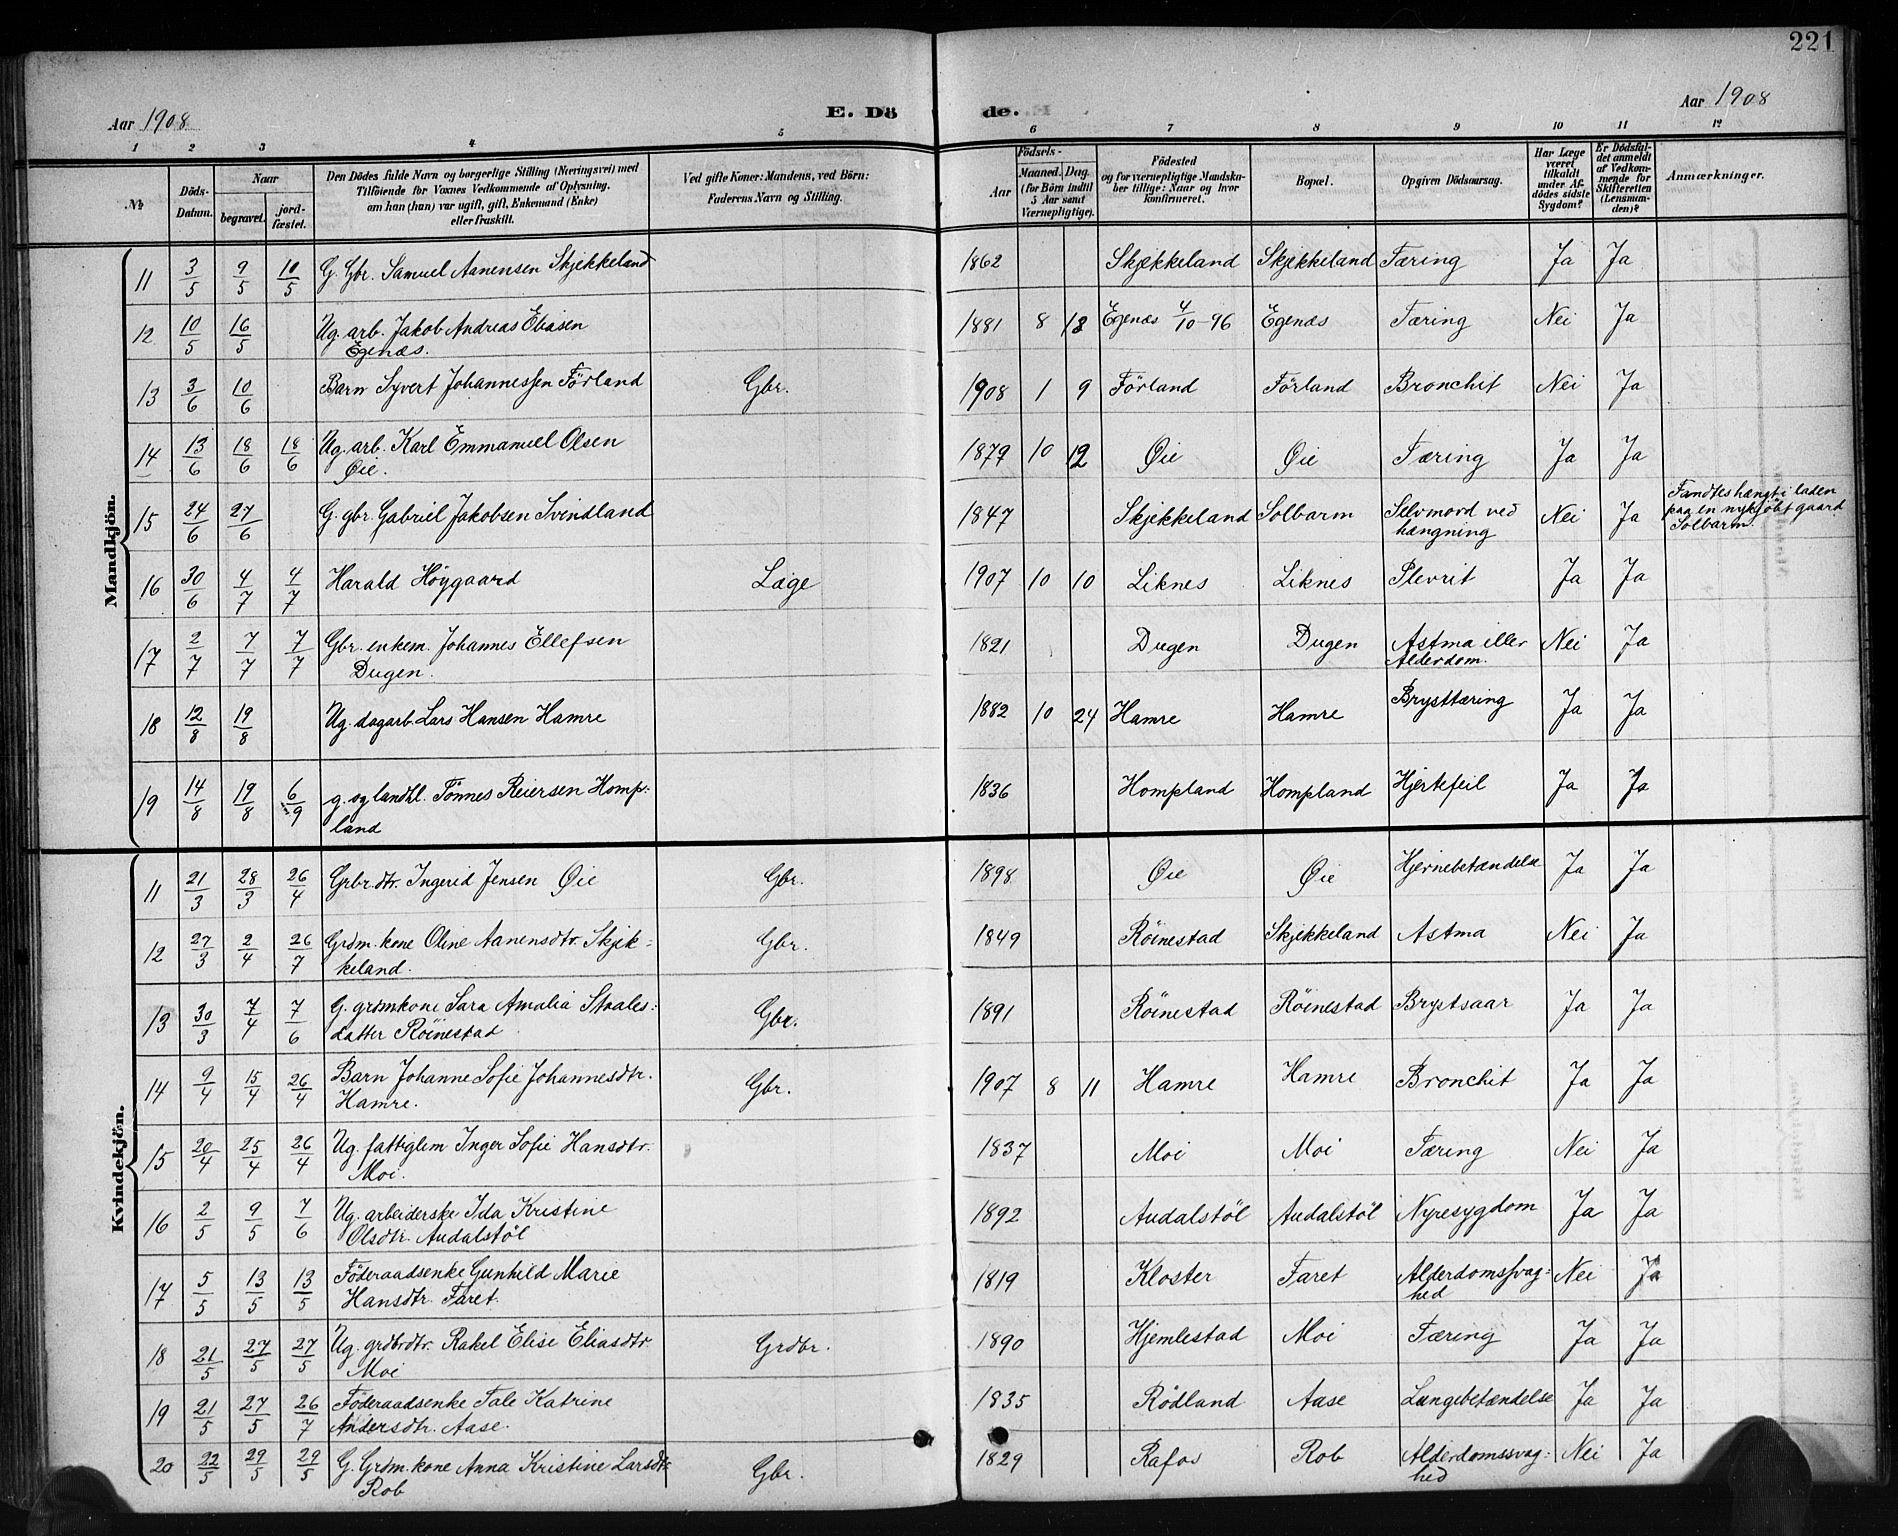 221
Aar 1908
E. Dö
de.
Aar 1908
1 2 3 4 5 6 7 8 9 10 11 12
№
Döds-
Datum.
Naar
begravet.
jord-
fæstet.
Den Dödes fulde Navn og borgerlige Stilling (Næringsvei) med
Tilföiende for Voxnes Vedkommende af Oplysning,
om han (hun) var ugift, gift, Enkemand (Enke)
eller fraskilt.
Ved gifte Koner: Mandens, ved Börn:
Faderens Navn og Stilling.
Födsels-
Aar
Maaned. Dag.
(for Börn indtil
5 Aar samt
Værnepligtige).
Födested
og for værnepligtige Mandska-
ber tillige: Naar og hvor
konfirmeret.
Bopæl.
Opgiven Dödsaarsag.
Har Læge
været
tilkaldt
under Af-
dödes sidste
Sygdom?
Er Dödsfal-
det anmeldt
af Vedkom-
mende for
Skifteretten
(Lensman-
den)?
Anmærkninger.
Mandkjön.
11 3/5 9/5 10/5 G. Gbr. Samuel Aanensen Skjekkeland 1862 Skjekkeland Skjekkeland Tæring Ja Ja
12 10/5 16/5 Ug. arb. Jakob Andreas Eliasen 1881 8 13 Egenæs 4/10-96 Egenæs Tæring Nei Ja
Egenæs.
13 3/6 10/6 Barn Syvert Johannessen Förland Gbr. 1908 1 9 Förland Förland Bronchit Nei Ja
14 13/6 18/6 18/6 Ug. arb. Karl Emmanuel Olsen 1879 10 12 Øie Øie Tæring Ja Ja
Øie.
15 24/6 27/6 G. gbr. Gabriel Jakobsen Svindland 1847 Skjekkeland Solbarm Selvmord ved Nei Ja Fandtes hængt i laden
hængning paa en nykjöbt gaard
Solbarm.
16 30/6 4/7 4/7 Harald Höygaard Læge 1907 10 10 Liknes Liknes Plevrit Ja Ja
17 2/7 7/7 7/7 Gbr. enkem. Johannes Ellefsen 1821 Dugen Dugen Astma eller Nei Ja
Dugen. Alderdom.
18 12/8 19/8 Ug. dagarb. Lars Hansen Hamre 1882 10 24 Hamre Hamre Brysttæring Ja Ja
19 14/8 19/8 6/9 g. og landhl. Tönnes Reiersen Homp- 1836 Hompland Hompland Hjertefeil Ja Ja
land
Kvindekjön.
11 21/3 28/3 26/4 Grbr.dtr. Ingerid Jensen Øie Gbr. 1898 Øie Øie Hjernebetændelse Ja Ja
12 27/3 2/4 26/7 Grdm. kone Oline Aanensdtr. Skjek- Gbr. 1849 Röinestad Skjekkeland Astma Nei Ja
keland.
13 30/3 7/4 7/6 G. grdmkone Sara Amalia Staales- Gbr. 1891 Röinestad Röinestad Brystsaar Ja Ja
datter Röinestad
14 9/4 15/4 26/4 Barn Johanne Sofie Johannesdtr. Gbr. 1907 8 11 Hamre Hamre Bronchit Ja Ja
Hamre.
15 20/4 25/4 26/4 Ug. fattiglem Inger Sofie Hansdtr. 1837 Moi Moi Tæring Nei Ja
Moi.
16 2/5 9/5 7/6 Ug. arbeiderske Ida Kristine 1892 Audalstöl Audalstöl Nyresygdom Ja Ja
Olsdtr. Audalstöl
17 5/5 13/5 13/5 Föderaadsenke Gunhild Marie 1819 Kloster Faret Alderdomssvag- Nei Ja
Hansdtr. Faret. hed
18 21/5 27/5 27/5 Ug. grdbrdtr. Rakel Elise Eliasdtr. Grdbr. 1890 Hjemlestad Moi Tæring Ja Ja
Moi
19 21/5 27/5 26/7 Föderaadsenke Tale Katrine 1835 Rödland Aase Lungebetændelse Ja Ja
Andersdtr. Aase.
20 22/5 29/5 29/5 G. Grdm. kone Anna Kristine Larsdtr. Gbr. 1829 Rafos Rob Alderdomssvag- Nei Ja
Rob hed